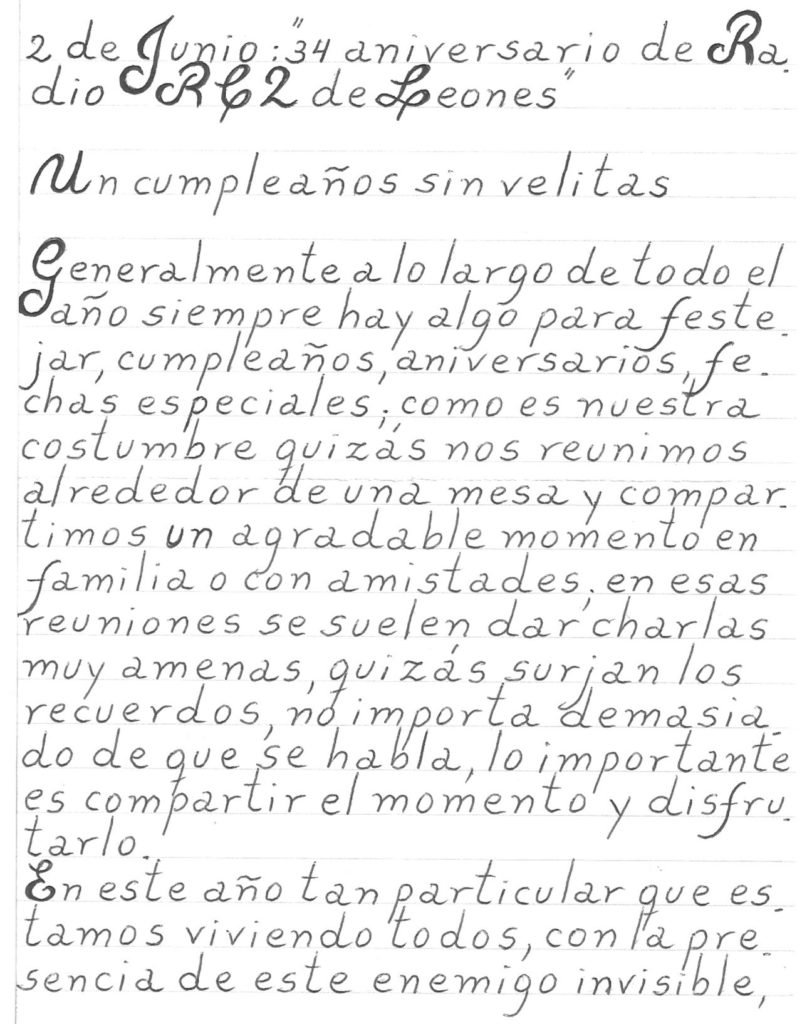 2 de Junio: "34 aniversario de Ra-
dio RC2 de Leones"
Un cumpleaños sin velitas
Generalmente a lo largo de todo el
año siempre hay algo para feste-
jar, cumpleaños, aniversarios, fe-
chas especiales; como es nuestra
costumbre quizás nos reunimos
alrededor de una mesa y compar-
timos un agradable momento en
familia o con amistades; en esas
reuniones se suelen dar charlas
muy amenas, quizás surjan los
recuerdos, no importa demasia-
do de que se habla, lo importante
es compartir el momento y disfru-
tarlo.
En este año tan particular que es-
tamos viviendo todos, con la pre-
sencia de este enemigo invisible,